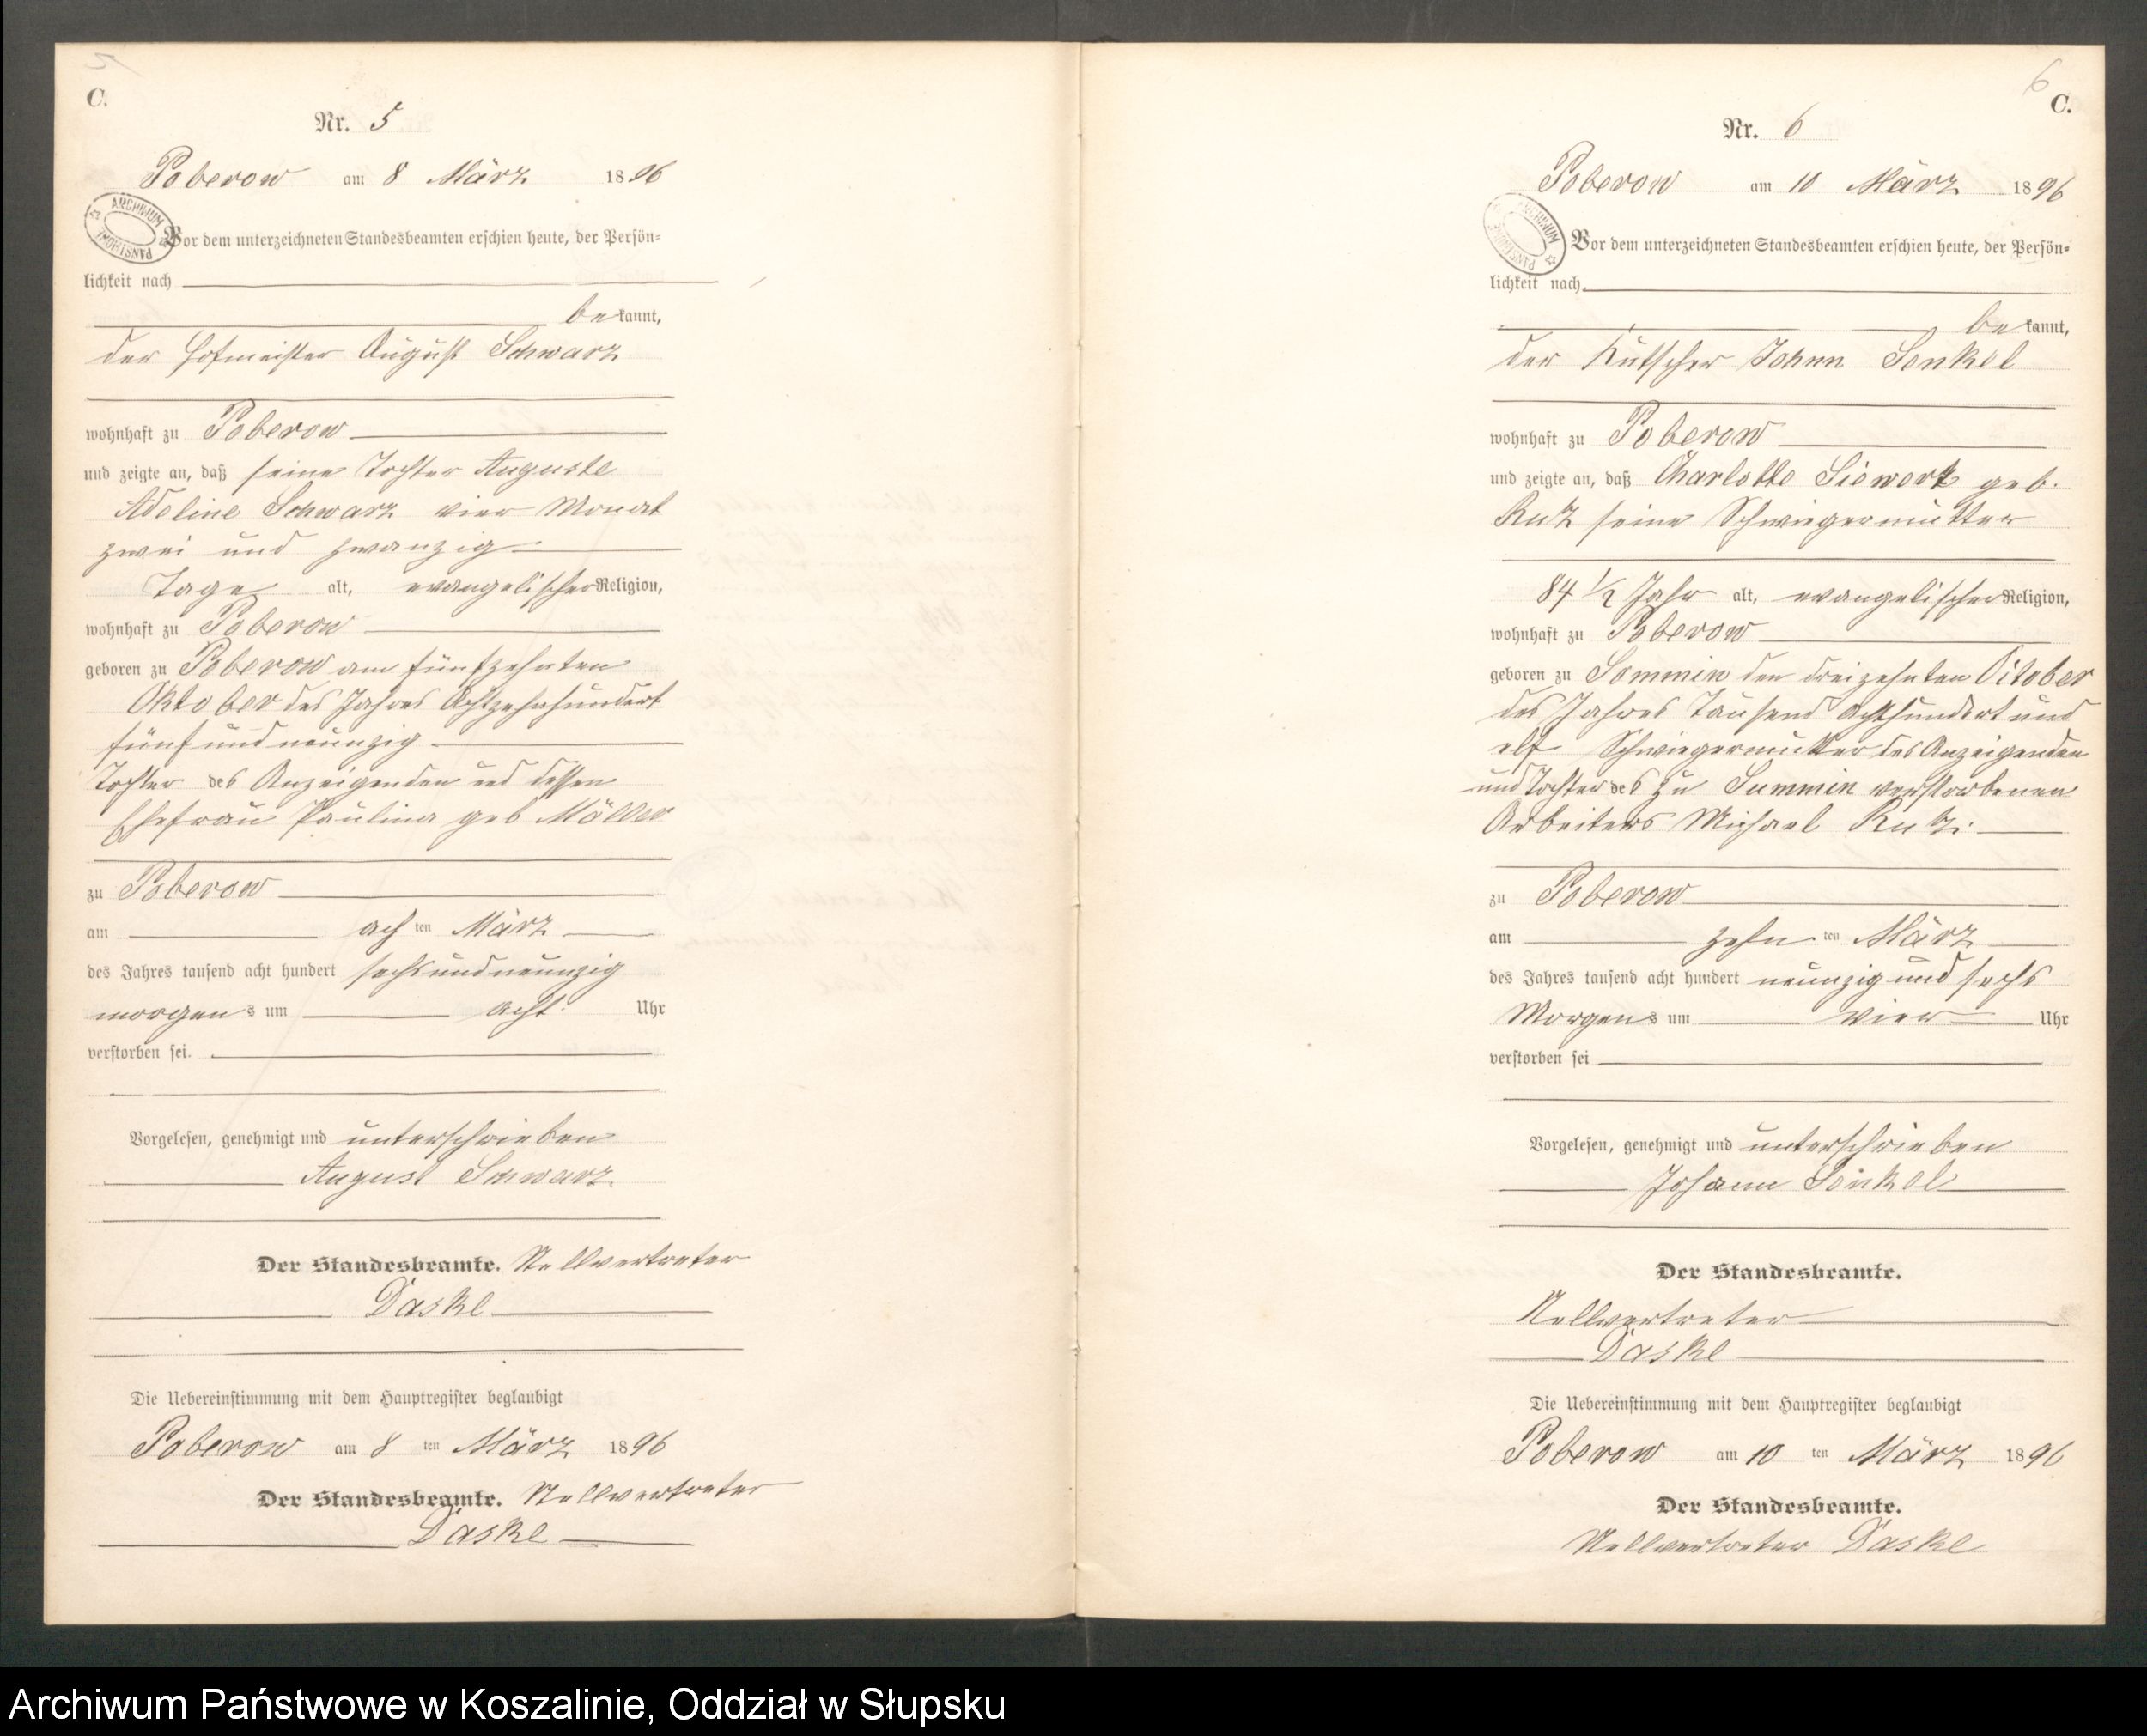 5
C.
Nr. 5
Poberow am 8 März 1896
ARCHIWUM PAŃSTWOWE
Vor dem unterzeichneten Standesbeamten erschien heute, der Persön-
lichkeit nach
bekannt,
der Hofmeister August Schwarz
wohnhaft zu Poberow
und zeigte an, daß seine Tochter Auguste
Adeline Schwarz vier Monat
zwei und zwanzig
Tage alt, evangelischer Religion,
wohnhaft zu Poberow
geboren zu Poberow am fünfzehnten
Oktober des Jahres Achtzehnhundert
fünf und neunzig
Tochter des Anzeigenden und dessen
Ehefrau Paulina geb Möller
zu Poberow
am achten März
des Jahres tausend acht hundert sechs und neunzig
morgens um acht Uhr
verstorben sei.
Vorgelesen, genehmigt und unterschrieben
August Schwarz
Der Standesbeamte. Stellvertreter
Daske
Die Uebereinstimmung mit dem Hauptregister beglaubigt
Poberow am 8 ten März 1896
Der Standesbeamte. Stellvertreter
Daske
6
C.
Nr. 6
Poberow am 10 März 1896
ARCHIWUM PAŃSTWOWE
Vor dem unterzeichneten Standesbeamten erschien heute, der Persön-
lichkeit nach
bekannt,
der Kutscher Johnn Sonkel
wohnhaft zu Poberow
und zeigte an, daß Charlotte Siewert geb.
Rutz seine Schwiegermutter
84 1/2 Jahr alt, evangelischer Religion,
wohnhaft zu Poberow
geboren zu Sommin den dreizehnten October
des Jahres Tausend achthundert und
elf Schwiegermutter des Anzeigenden
und Tochter des zu Summin verstorbenen
Arbeiters Michael Rutz.
zu Poberow
am zehnten März
des Jahres tausend acht hundert neunzig und sechs
Morgens um vier Uhr
verstorben sei
Vorgelesen, genehmigt und unterschrieben
Johann Sonkel
Der Standesbeamte.
Stellvertreter
Daske
Die Uebereinstimmung mit dem Hauptregister beglaubigt
Poberow am 10 ten März 1896
Der Standesbeamte.
Stellvertreter Daske
Archiwum Państwowe w Koszalinie, Oddział w Słupsku